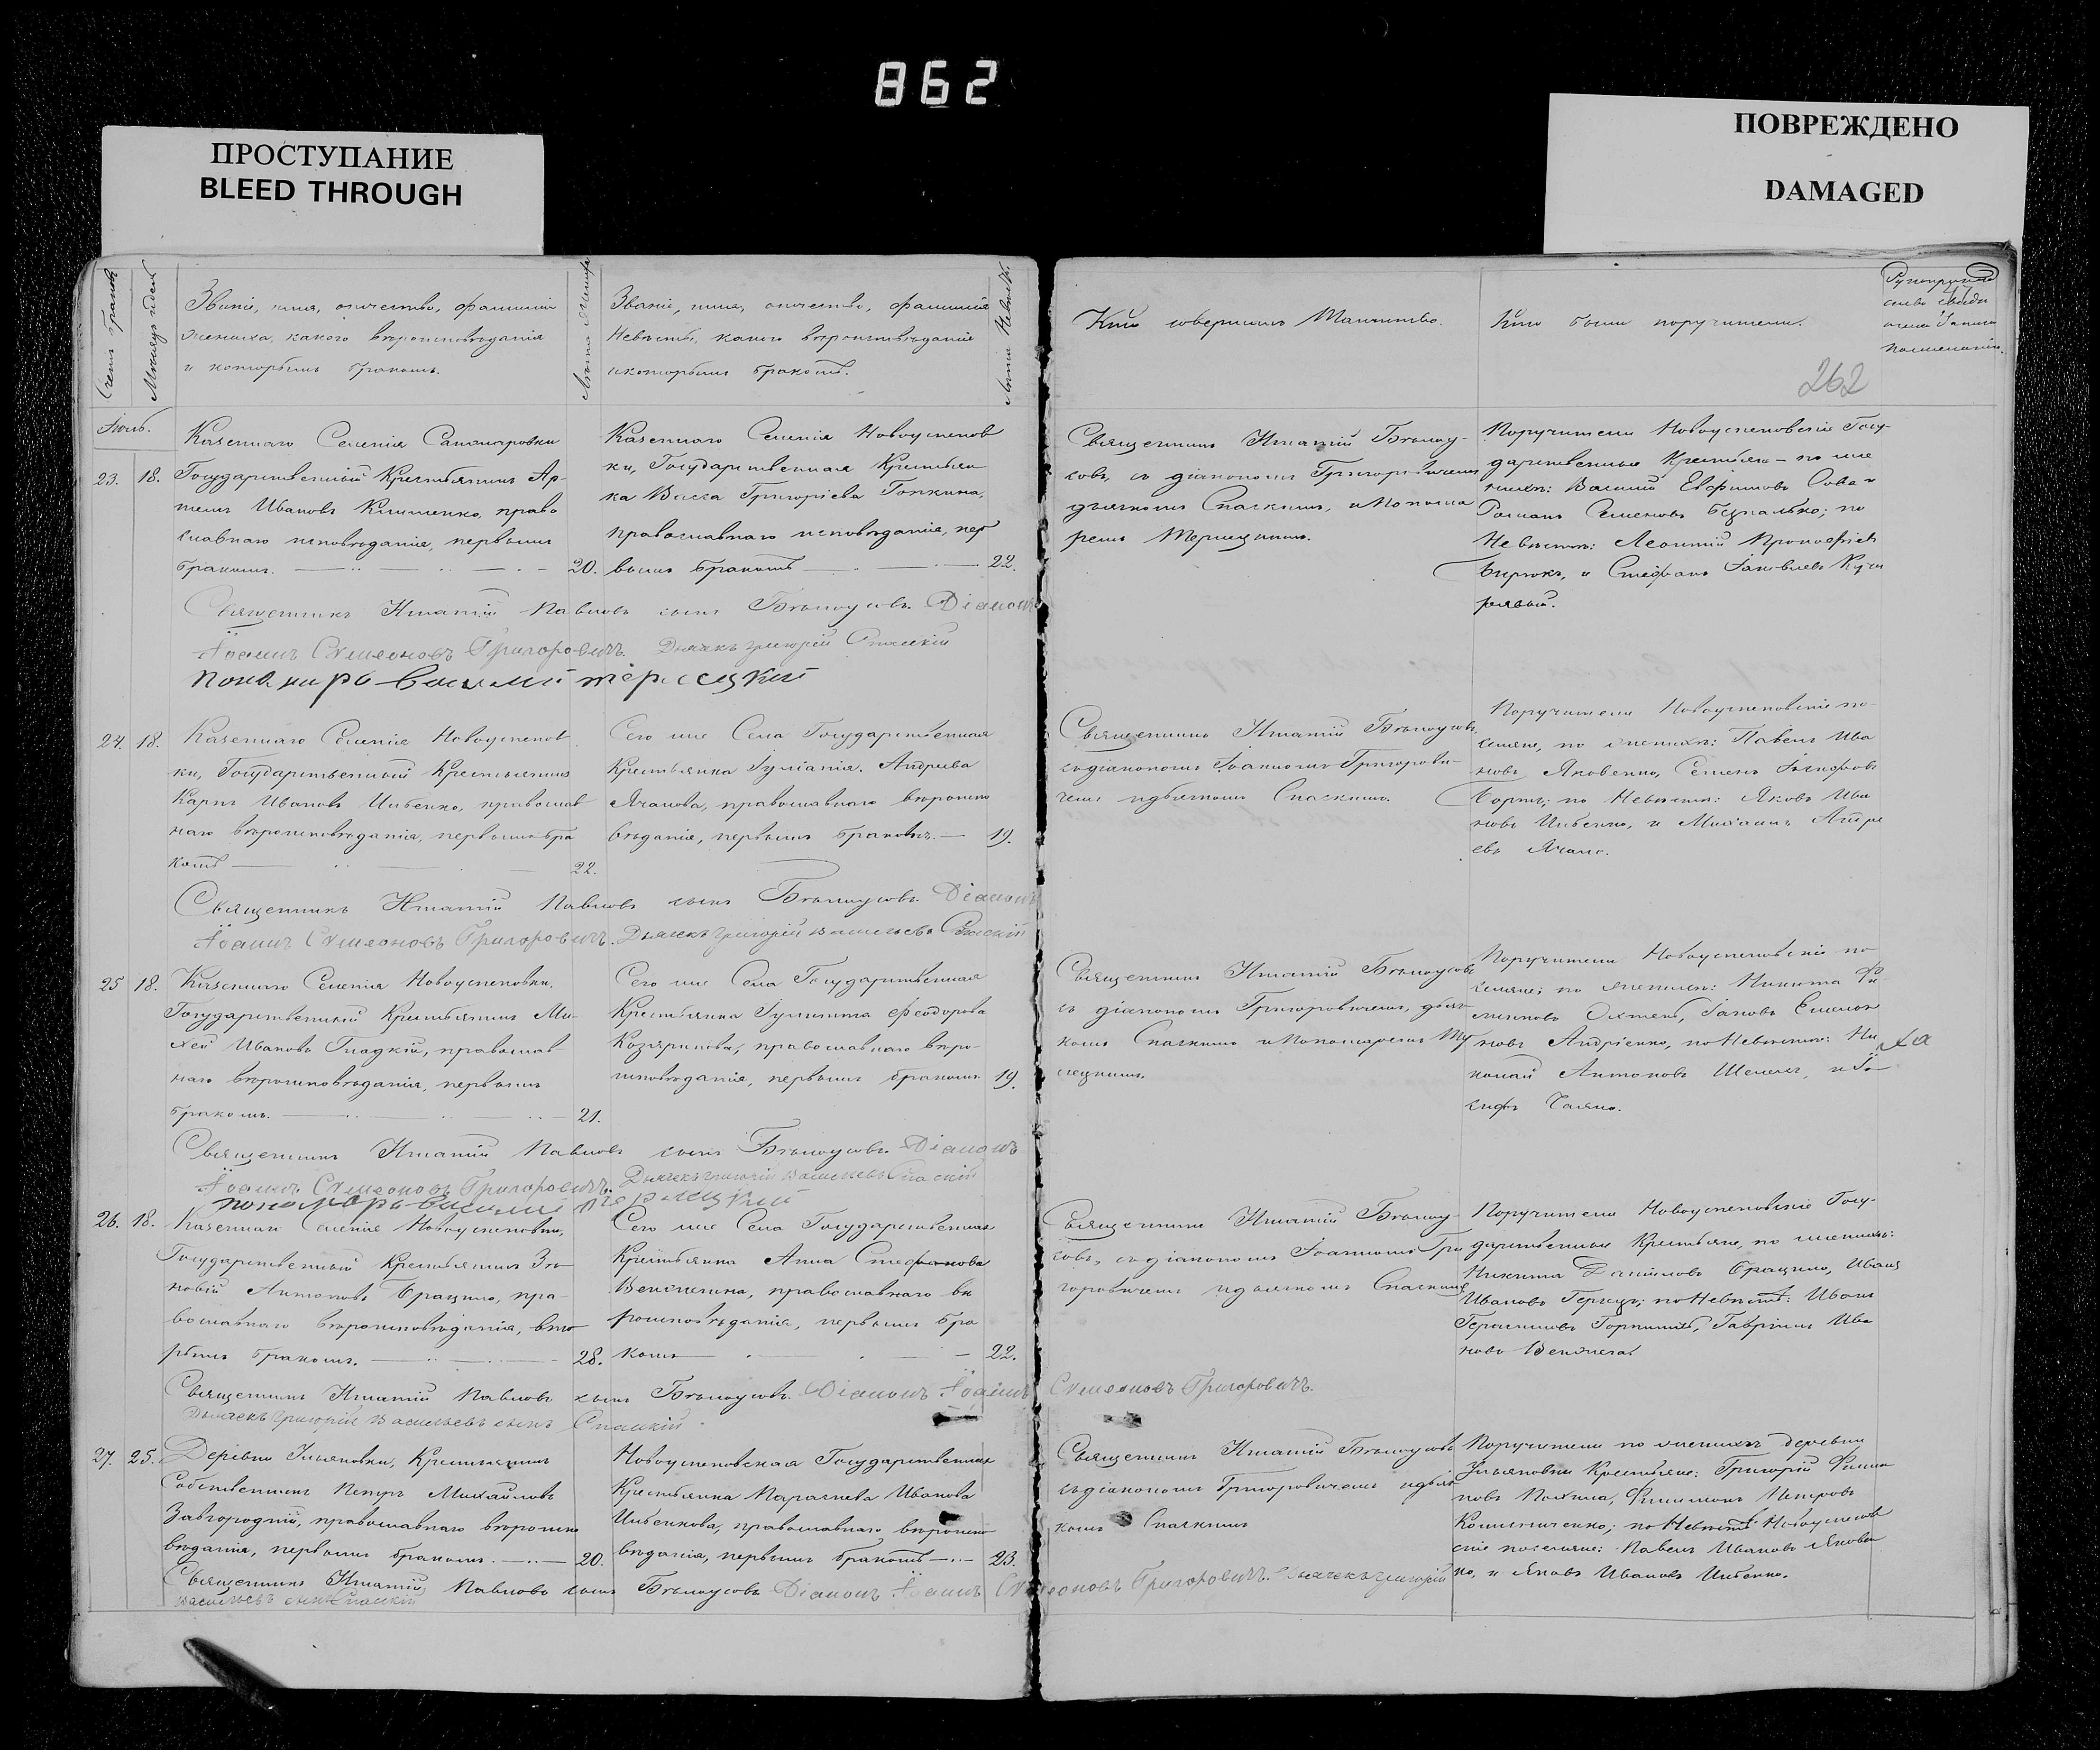 862
ПРОСТУПАНИЕ
BLEED THROUGH
ПОВРЕЖДЕНО
DAMAGED
Счетъ браковъ
Мѣсяцъ и день
Званіе, имя, отчество, фамилія
жениха, какого вѣроисповѣданія
и которымъ бракомъ.
Лѣта жениха
Званіе, имя, отчество, фамилія
Невѣсты, какого вѣроисповѣданія
и которымъ бракомъ.
Лѣта Невѣсты
Кто совершалъ Таинство.
Кто были поручители.
262
23. 18.
Казеннаго Селенія
Государственный Крестьянинъ Ар-
темъ Ивановъ Клименко, право
славнаго исповѣданія, первымъ
бракомъ. 20.
Казеннаго Селенія Новоуспенов
ки, Государственная Крестьян
ка Васса Григоріева
православнаго исповѣданія, пер
вымъ бракомъ 22.
Священникъ Игнатій Бѣлоу-
совъ, съ діакономъ Григоровичемъ
дьячкомъ Спасскимъ, и Понома
ремъ
Поручители Новоуспеновскіе Госу-
дарственные Крестьяне – по же
нихѣ: Василій Евфимовъ Сова и
Романъ Семеновъ Безпалько; по
Невѣстѣ: Леонтій Прокофіев
Бирюкъ, и Стефанъ Іаковлевъ Куче
рявый.
Священникъ Игнатій Павловъ сынъ Бѣлоусовъ. Діаконъ
Іоаннъ Симеоновъ Григоровичъ. Дьячекъ Григорій Спасскій
24. 18.
Казеннаго Селенія Новоуспенов
ки, Государственный Крестьянинъ
Карпъ Ивановъ Цибенко, православ
наго вѣроисповѣданія, первымъ бра
комъ 22.
Сего же Села Государственная
Крестьянка Іуліанія Андреева
православнаго вѣроиспо
вѣданія, первымъ бракомъ. 19.
Священникъ Игнатій Бѣлоусовъ
съ діакономъ Іоанномъ Григорови-
чемъ и дьячкомъ Спасскимъ.
Поручители Новоуспеновскіе по-
селяне, по женихѣ: Павелъ Ива
новъ Яковенко, Семенъ
по Невѣстѣ: Яковъ Ива
новъ Цибенко, и Михаилъ Андре
евъ
Священникъ Игнатій Павловъ сынъ Бѣлоусовъ. Діаконъ
Іоаннъ Симеоновъ Григоровичъ. Дьячекъ Григорій Васильевъ Спасскій
25 18.
Казеннаго Селенія Новоуспеновки,
Государственный Крестьянинъ Ми-
хей Ивановъ Гладкій, православ
наго вѣроисповѣданія, первымъ
бракомъ. 21.
Сего же Села Государственная
Крестьянка Іулитта Феодорова
православнаго вѣро-
исповѣданія, первымъ бракомъ 19.
Священникъ Игнатій Бѣлоусовъ
съ діакономъ Григоровичемъ, дьяч
комъ Спасскимъ и Пономаремъ
Поручители Новоуспеновскіе по
селяне; по женихѣ: Никита
Іаковъ
новъ Андріенко, по Невѣстѣ: Ни
колай Антоновъ
Священникъ Игнатій Павловъ сынъ Бѣлоусовъ. Діаконъ
Іоаннъ Симеоновъ Григоровичъ. Дьячекъ Григорій Васильевъ Спасскій
26. 18.
Казеннаго Селенія Новоуспеновки,
Государственный Крестьянинъ Зи-
новій Антоновъ пра-
вославнаго вѣроисповѣданія, вто
рымъ бракомъ. 28.
Сего же Села Государственная
Крестьянка Анна Стефанова
православнаго вѣ
роисповѣданія, первымъ бра
комъ 22.
Священникъ Игнатій Бѣлоу-
совъ, съ діакономъ Іоанномъ Гри
горовичемъ и дьячкомъ Спасскимъ
Поручители Новоуспеновскіе Госу-
дарственные Крестьяне, по женихѣ:
Никита Даниловъ Иванъ
Ивановъ по Невѣстѣ: Иванъ
Герасимовъ Гавріилъ Ива
новъ
Священникъ Игнатій Павловъ сынъ Бѣлоусовъ. Діаконъ Іоаннъ Симеоновъ Григоровичъ.
Дьячекъ Григорій Васильевъ сынъ Спасскій
27. 25.
Деревни Ульяновки, Крестьянинъ
Собственникъ Петръ Михайловъ
Завгородній, православнаго вѣроиспо
вѣданія, первымъ бракомъ. 20.
Новоуспеновская Государственная
Крестьянка Параскева Иванова
Цибенкова, православнаго вѣроиспо
вѣданія, первымъ бракомъ 23.
Священникъ Игнатій Бѣлоусовъ
съ діакономъ Григоровичемъ и дьяч
комъ Спасскимъ
Поручители по женихѣ деревни
Ульяновки Крестьяне: Григорій
Филимонъ Петровъ
по Невѣстѣ: Новоуспенов
скіе поселяне: Павелъ Ивановъ Яковен
ко, и Яковъ Ивановъ Цибенко.
Священникъ Игнатій Павловъ сынъ Бѣлоусовъ Діаконъ Іоаннъ Симеоновъ Григоровичъ. Дьячекъ Григорій
Васильевъ сынъ Спасскій